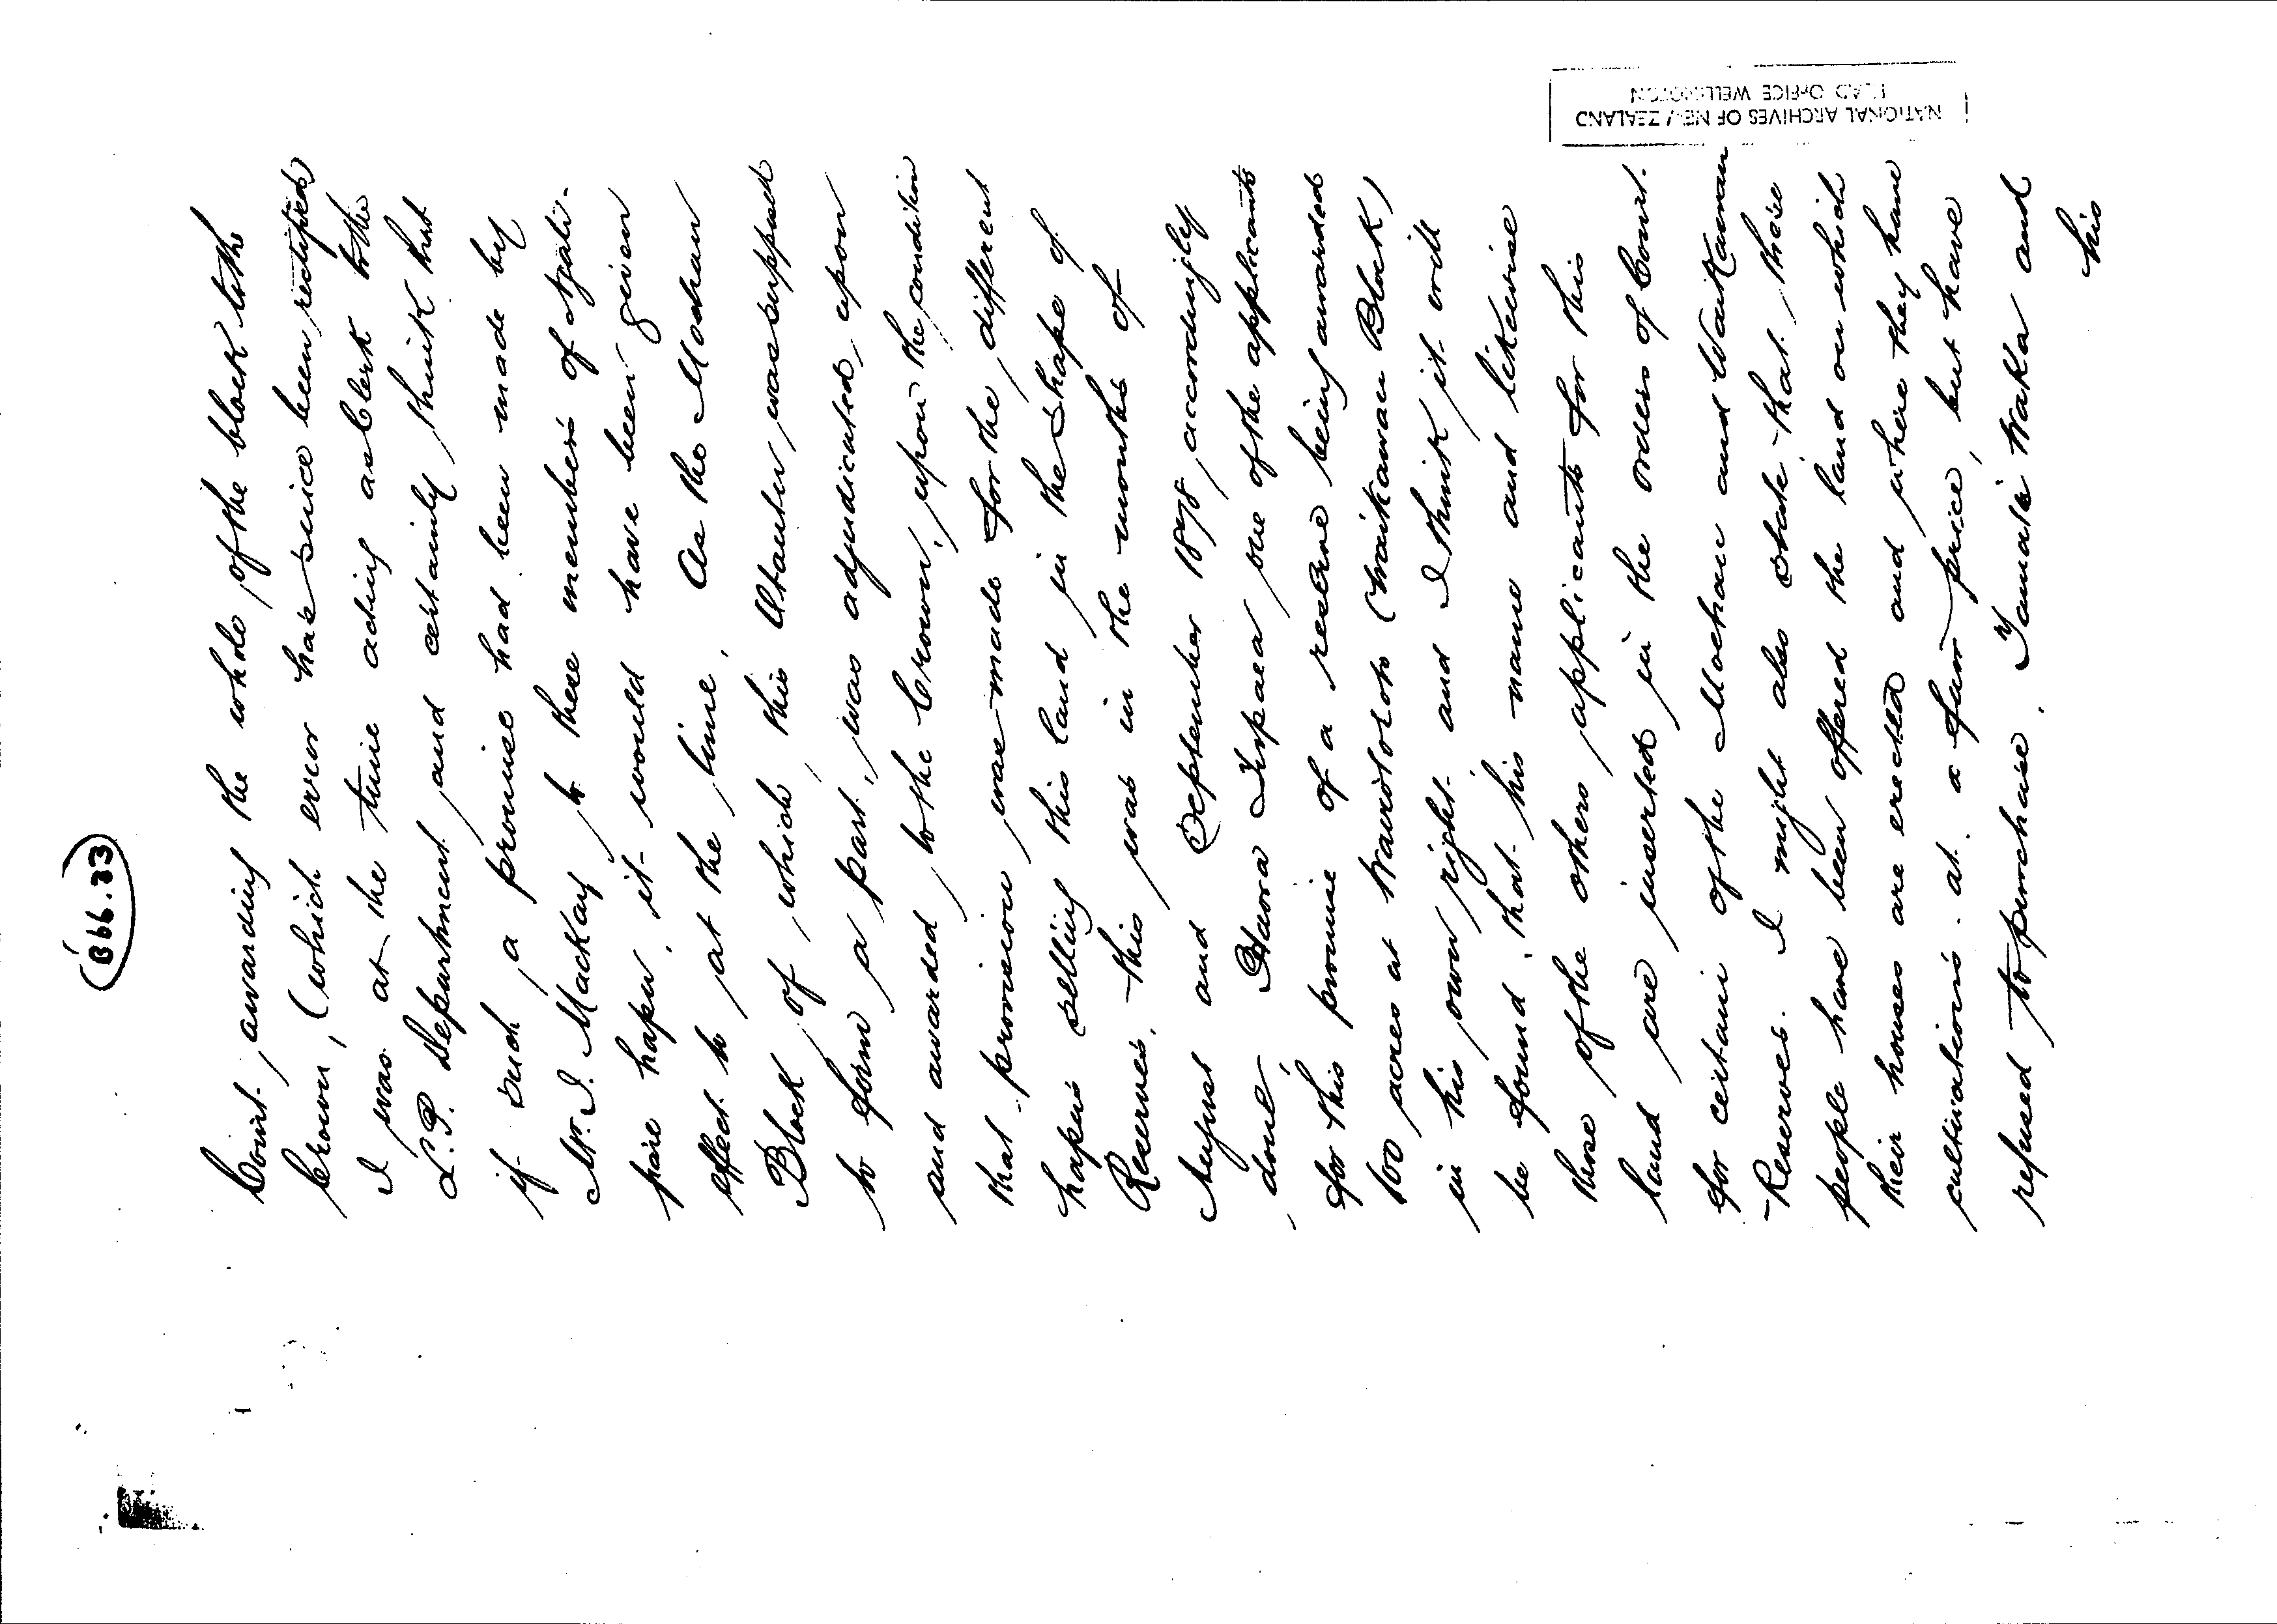 B66.33
Court, awarding the whole of the block to the
Crown, (which error has since been rectified)
I was at the time acting as Clerk to the
L.P. Department and certainly think that
if such a promise had been made by
Mr. J. Mackay to these members of Ngati-
pare hapu, it would have been given
effect to at the time. As the Moehau
Block of which this Ahautu was supposed
to form a part, was adjudicated upon
and awarded to the Crown, upon the condition
that provision was made for the different
hapus selling this land in the shape of
Reserves, this was in the months of
August and September 1878, accordingly
done. Haora Tupaea one of the applicants
for this promise of a reserve being awarded
100 acres at (Waikawau Block)
in his own right and I think it will
be found that his name and likewise
those of the others applicants for this
land are inserted in the orders of Court
for certain of the Moehau and Waikawau
Reserves. I might also state that these
people have been offered the land on which
their houses are erected and where they have
cultivations at a fair price, but have
refused to purchase. Waka and
his
NATIONAL ARCHIVES OF NEW ZEALAND
HEAD OFFICE WELLINGTON